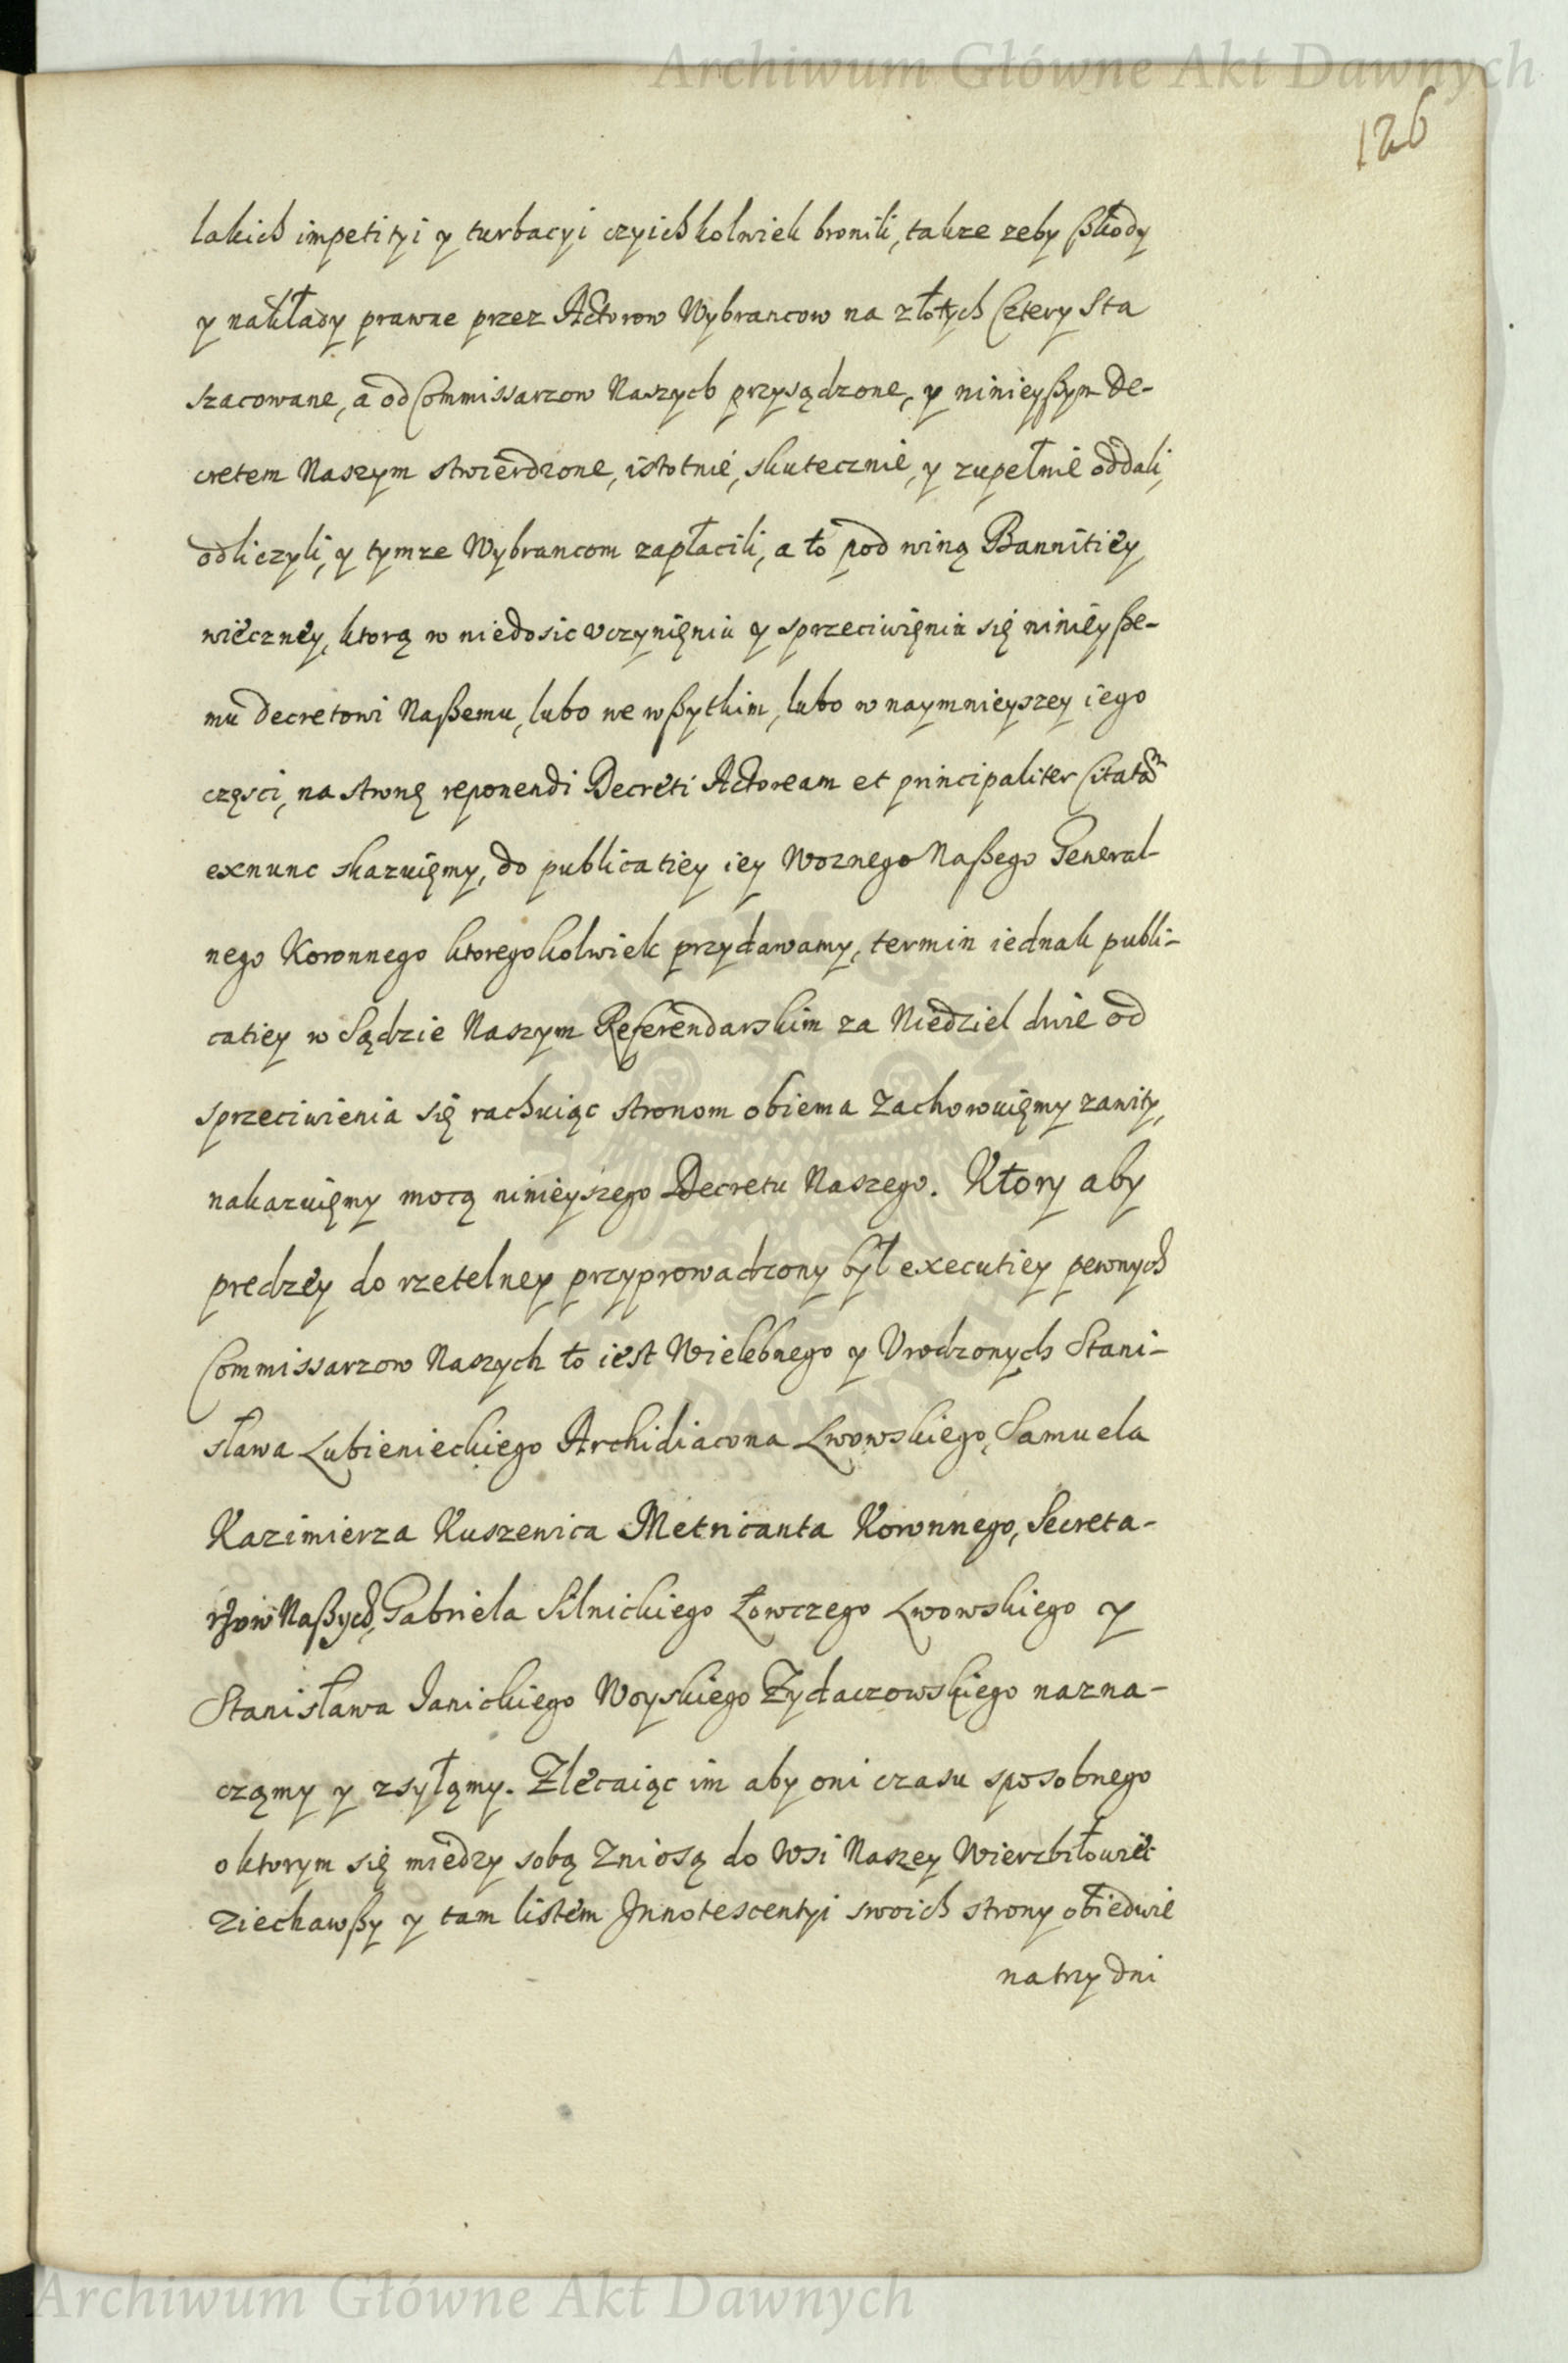 Archiwum Główne Akt Dawnych
126
lakich impetityi y turbacyi czyichkolwiek bronili, takze zeby ßkody
y nakłady prawne przez Actorow Wybrancow na złotych Cztery Sta
szacowane, a od Commissarzow Naszych przysądzone, y ninieyßym De-
cretem Naszym stwierdzone, istotnie, skutecznie, y zupełnie oddali,
odliczyli, y tymze Wybrancom zapłacili, a to pod winą Bannitiey
wieczney, ktorą w niedosic vczynięniu y sprzeciwięniu się ninieyße-
mu decretowi Naßemu, lubo we wßytkim, lubo w naymnieyszey iego
częsci, na stronę reponendi Decreti Actoream et principaliter Citatam
exnunc skazuięmy, do publicatiey iey Woznego Naßego General-
nego Koronnego ktoregokolwiek przydawamy, termin iednak publi-
catiey w Sądzie Naszym Referendarskim za Niedziel dwie od
sprzeciwienia się rachuiąc stronom obiema zachowuięmy zawity,
nakazuięmy mocą ninieyszego Decretu Naszego. Ktory aby
predzey do rzetelney przyprowadzony był executiey pewnych
Commissarzow Naszych to iest Wielebnego y Vrodzonych Stani-
sława Lubienieckiego Archidiacona Lwowskiego, Samuela
Kazimierza Kuszewica Metricanta Koronnego, Secreta-
rzow Naßych, Gabriela Silnickiego Łowczego Lwowskiego y
Stanisława Ianickiego Woyskiego Zydaczowskiego nazna-
cząmy y zsyłąmy. Zlecaiąc im aby oni czasu sposobnego
o ktorym się miedzy sobą zniosą do Wsi Naszey Wierzbiłowiec
ziechawßy y tam listem Innotescentyi swoich strony obiedwie
na trzy dni
Archiwum Główne Akt Dawnych